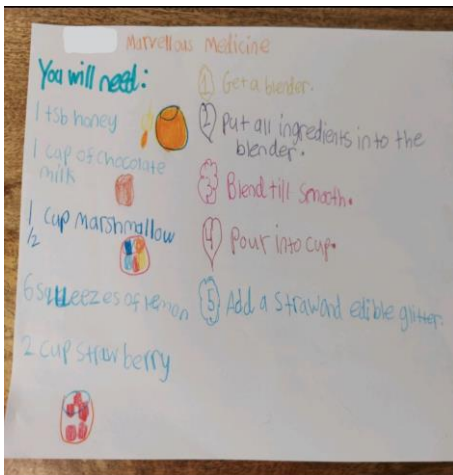 Marvellous Medicine
You will need:
1 tsb honey
1 cap of chocolate
milk
1 cup marshmallow
1/2
6 squeezes of lemon
2 cup strawberry
1 Get a blender.
2 put all ingredients into the
blender.
3 Blend till smooth.
4 Pour into cup.
5 Add a straw and edible glitter.